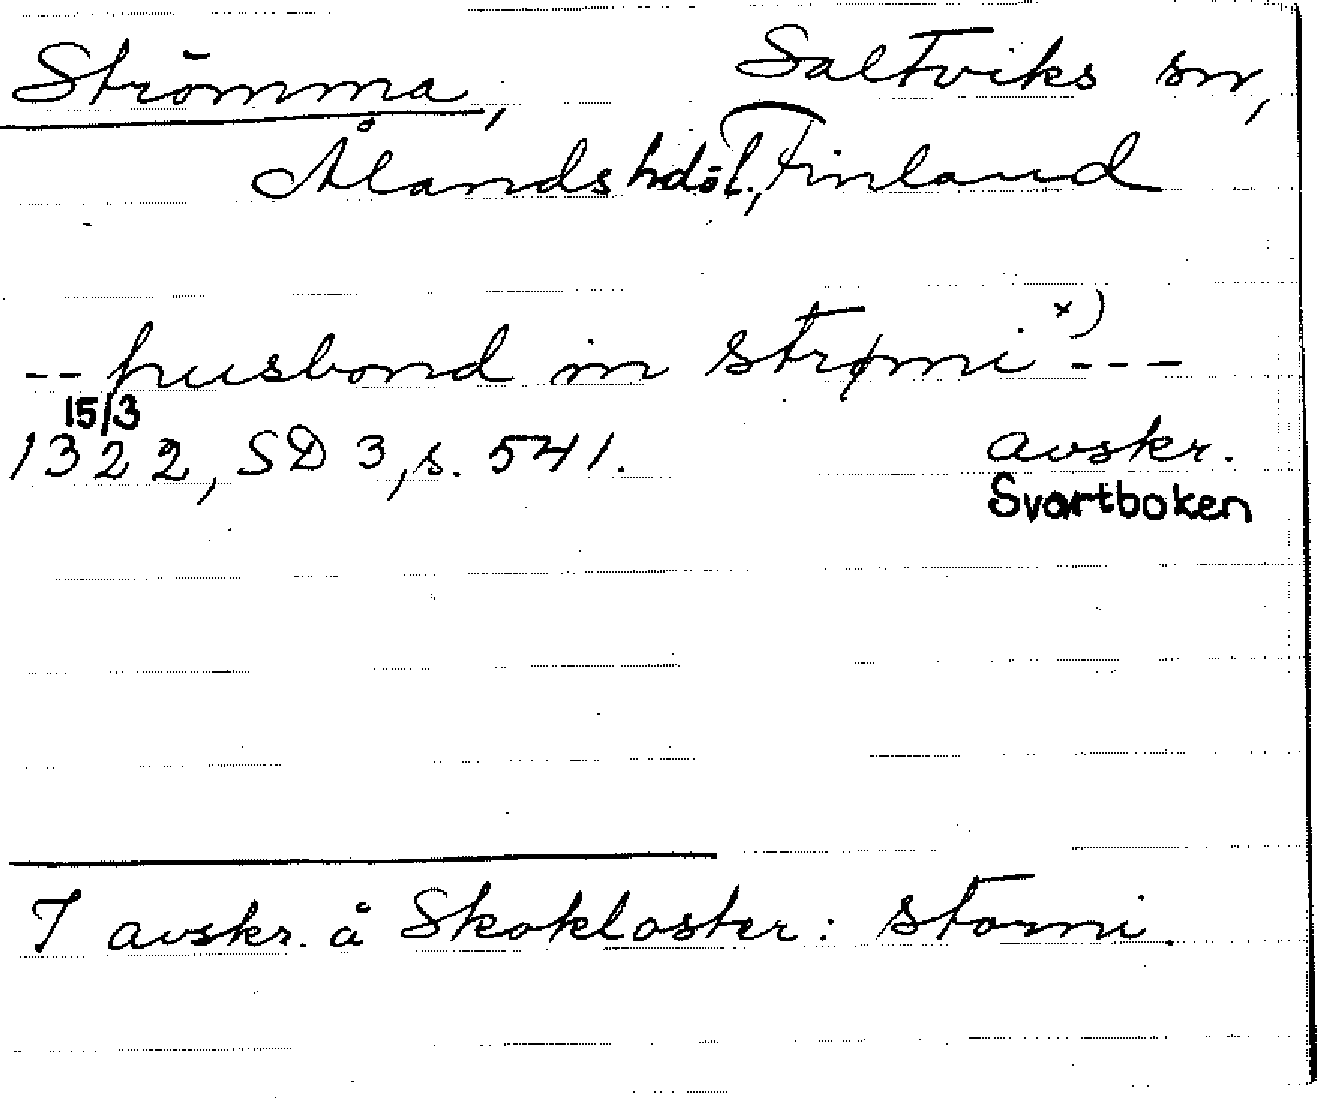 Strömma, Saltviks sn,
Ålands hdöl., Finland
-- husbond in strømi x) ---
15/3
1322, SD 3, s. 541. avskr.
Svartboken
I avskr. å Skokloster: stomi.